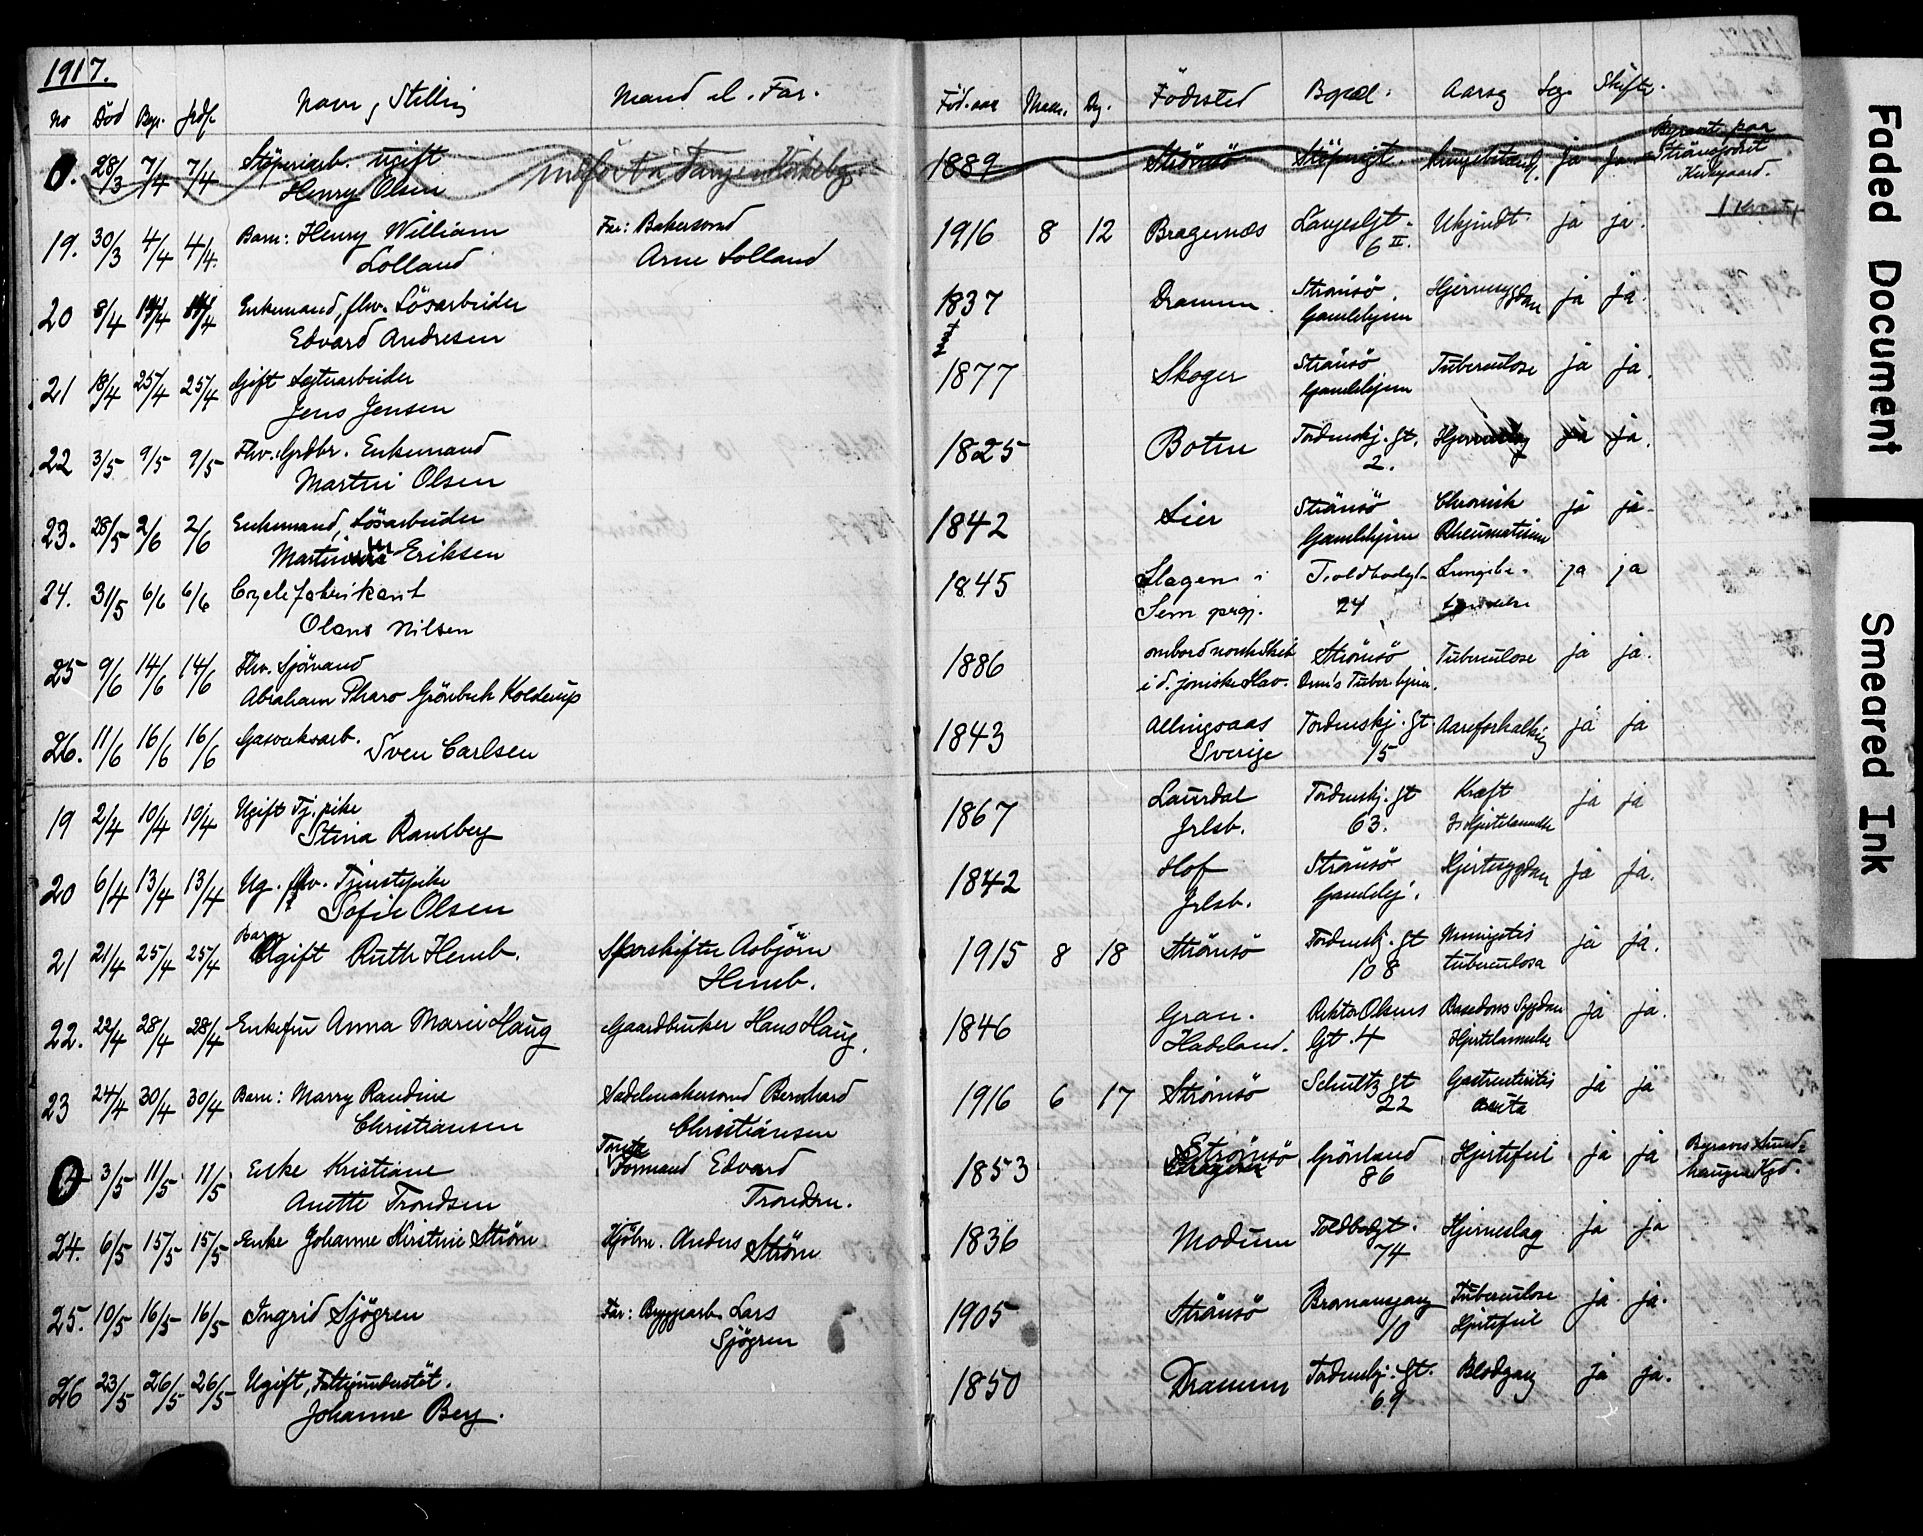 1917.
No Död Begr. Jrdf. Navn, Stilling Mand el. Far. Föd. aar Maan. Dg. Födested Bopæl. Aarsag Sog. Skifte.
0. 28/3 7/4 7/4 Stöperiarb. ugift 1889 Strömsö ja ja Begravet paa
Henry Olsen Strömsgodset
Kirkegaard.
19. 30/3 4/4 4/4. Barn: Henry William Far: Bakersvend 1916 8 12 Bragernæs Langesgt. Ukjendt ja ja.
Lolland Arne Lolland 6 II.
20 8/4 14/4 14/4 Enkemand, fhv. Lösarbeider 1837 Drammen Strömsö Hjernesygdom ja ja.
Edvard Andresen Gamlehjem
21 18/4 25/4 25/4 Gift Sagtearbeider 1877 Skoger Strömsö Tuberculose ja ja.
Jens Jensen Gamlehjem
22 3/5 9/5 9/5 Fhv. Grdbr. Enkemand 1825 Botne Tordenskj. gt. Hjerneslag ja ja.
Martin Olsen 2.
23. 28/5 2/6 2/6 Enkemand, Lösarbeider 1842 Lier Strömsö Chronisk ja ja
Eriksen Gamlehjem Rheumatisme
24. 31/5 6/6 6/6 Cyclefabrikant 1845 Slagen i Toldbodgt. Lungebe- ja ja
Olans Nilsen Sem prgj. 24 tændelse
25 9/6 14/6 14/6 Fhv. Sjömand 1886 ombord norsk skib Strömsö Tuberculose ja ja.
Abraham Pharo Grönbech Kolderup i d. joniske Hav. Dram's Tuber. hjem.
26. 11/6 16/6 16/6 Gasverksarb. 1843 Allingsaas Tordenskj. gt. Aareforkalkning ja ja
Sven Carlsen Sverige 15
19 2/4 10/4 10/4 Ugift Tj. pike 1867 Laurdal Tordenskj. gt Kræft ja ja
Stina Ramberg Jrlsb. 63. Hjertelammelse
20 6/4 13/4 13/4 Ug. fhv. Tjenestepike 1842 Hof Strömsö Hjertesygdom ja ja.
Sofie Olsen Jrlsb. Gamlehj.
Barn
21 21/4 25/4 25/4 Ugift Ruth Hemb. Sporskifter Asbjörn 1915 8 18 Strömsö Tordenskj. gt Meningitis ja ja.
Hemb. 108 tuberculosa
22. 22/4 28/4 28/4 Enkefru Anna Marie Haug Gaardbruker Hans Haug. 1846 Gran. Rektor Olsens Basedows Sygdom ja ja.
Hadeland. Gt. 4 Hjertelammelse
23 24/4 30/4 30/4 Barn: Marry Randine Sadelmakersvend Bernhard 1916 6 17 Strömsö Schultz gt Gastroenteritis ja ja
Christiansen Christiansen 22 acuta
0 3/5 11/5 11/5 Enke Kristiane Formand Edvard 1853 Strömsö Grönland Hjertefeil ja ja Begraves Strand-
Anette Trondsen Trondsen. 86 haugen Kgd.
24. 6/5 15/5 15/5 Enke Johanne Kirstine Ström Kjöbm. Anders Ström 1836 Modum Toldbodgt. Hjerneslag ja ja
74
25. 10/5 16/5 16/5 Ingrid Sjögren Far: Byggearb. Lars 1905 Strömsö Bromansgang Tuberculose ja ja.
Sjögren 10 Hjertefeil
26 23/5 26/5 26/5 Ugift, Fattigunderstöt. 1850 Drammen Tordenskj. gt. Blodgang ja ja.
Johanne Berg. 69
Faded Document
Smeared Ink